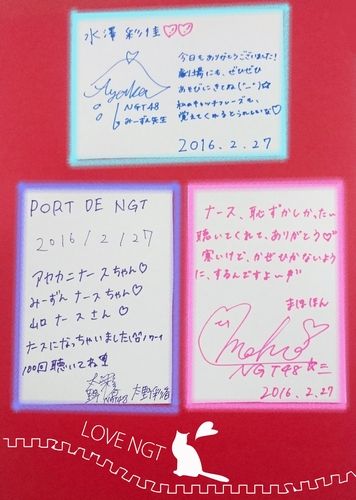 水澤 彩佳♡♡
今日もありがとうございました!
劇場にも、ぜひぜひ
あそびにきてね(^-^)☆
私のキャッチフレーズも、
覚えてくれるとうれしいな♡
Ayaka
NGT48
みーずん先生
2016.2.27
PORT DE NGT
2016/2/27
アヤカニナースちゃん♡
みーずんナースちゃん♡
山口ナースさん♡
ナースになっちゃいました
100回聴いてね
NGT48
ナース、恥ずかしかったぃ
聴いてくれて、ありがとう♡
寒いけど、かぜひかないよう
に、するんですよ〜
まほほん
Maho
NGT48
2016.2.27
LOVE NGT